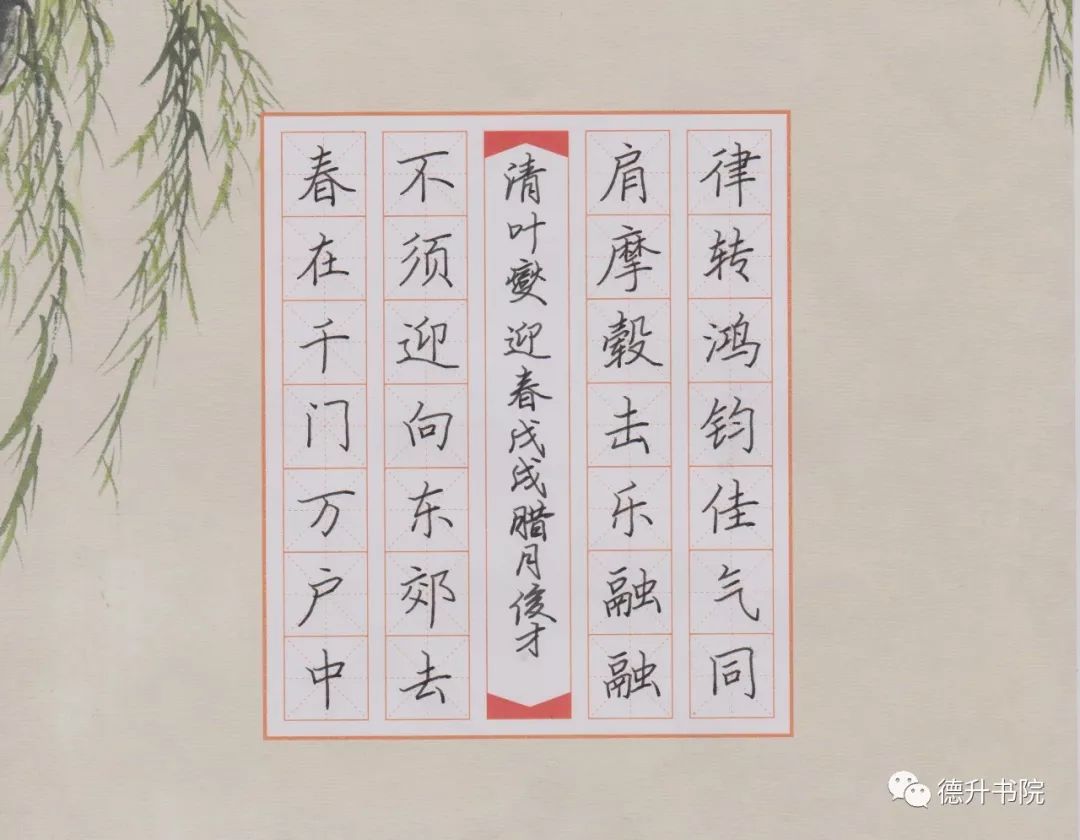 律转鸿钧佳气同
肩摩毂击乐融融
清叶燮迎春戊戌腊月俊才
不须迎向东郊去
春在千门万户中
德升书院